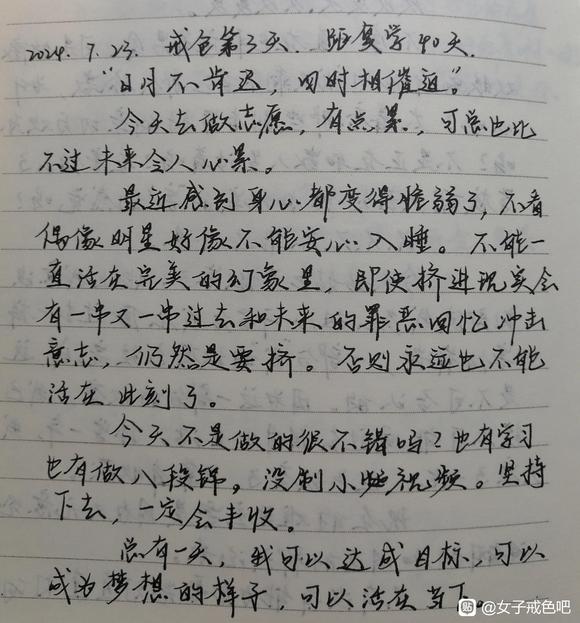 2024. 7. 23. 戒色第3天. 距复学40天.
“日月不肯迟,四时相催迫。”
今天去做志愿,有点累,可总也比
不过未来令人心累。
最近感到身心都变得脆弱了,不看
偶像明星好像不能安心入睡。不能一
直活在完美的幻象里,即使挤进现实会
有一串又一串过去和未来的罪恶回忆冲击
意志,仍然是要挤。否则永远也不能
活在此刻了。
今天不是做的很不错吗?也有学习
也有做八段锦,没刷小短视频。坚持
下去,一定会丰收。
总有一天,我可以达成目标,可以
成为梦想的样子,可以活在当下。
贴 @女子戒色吧